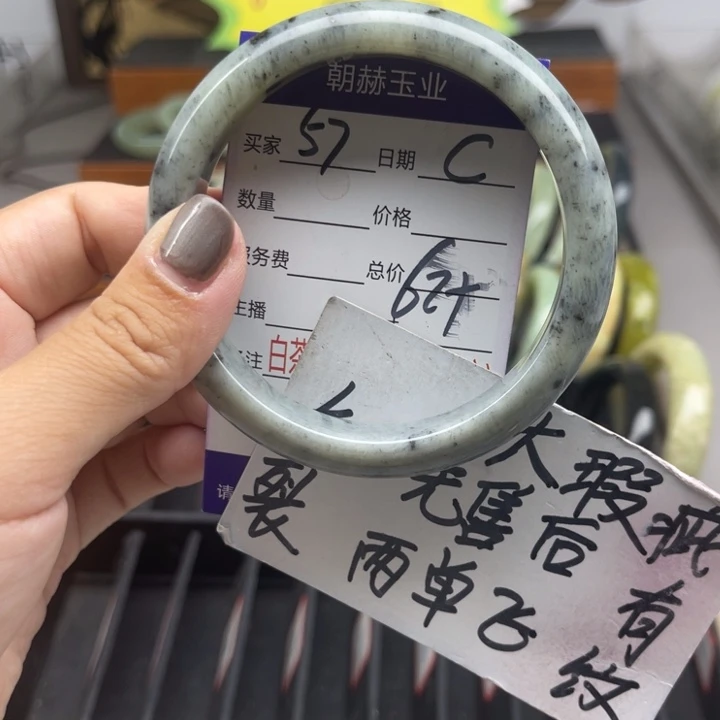 朝赫玉业
买家 57 日期 C
数量 价格
服务费 总价
主播
注 白茶
请
大瑕疵 有纹
裂 无售后
两单飞